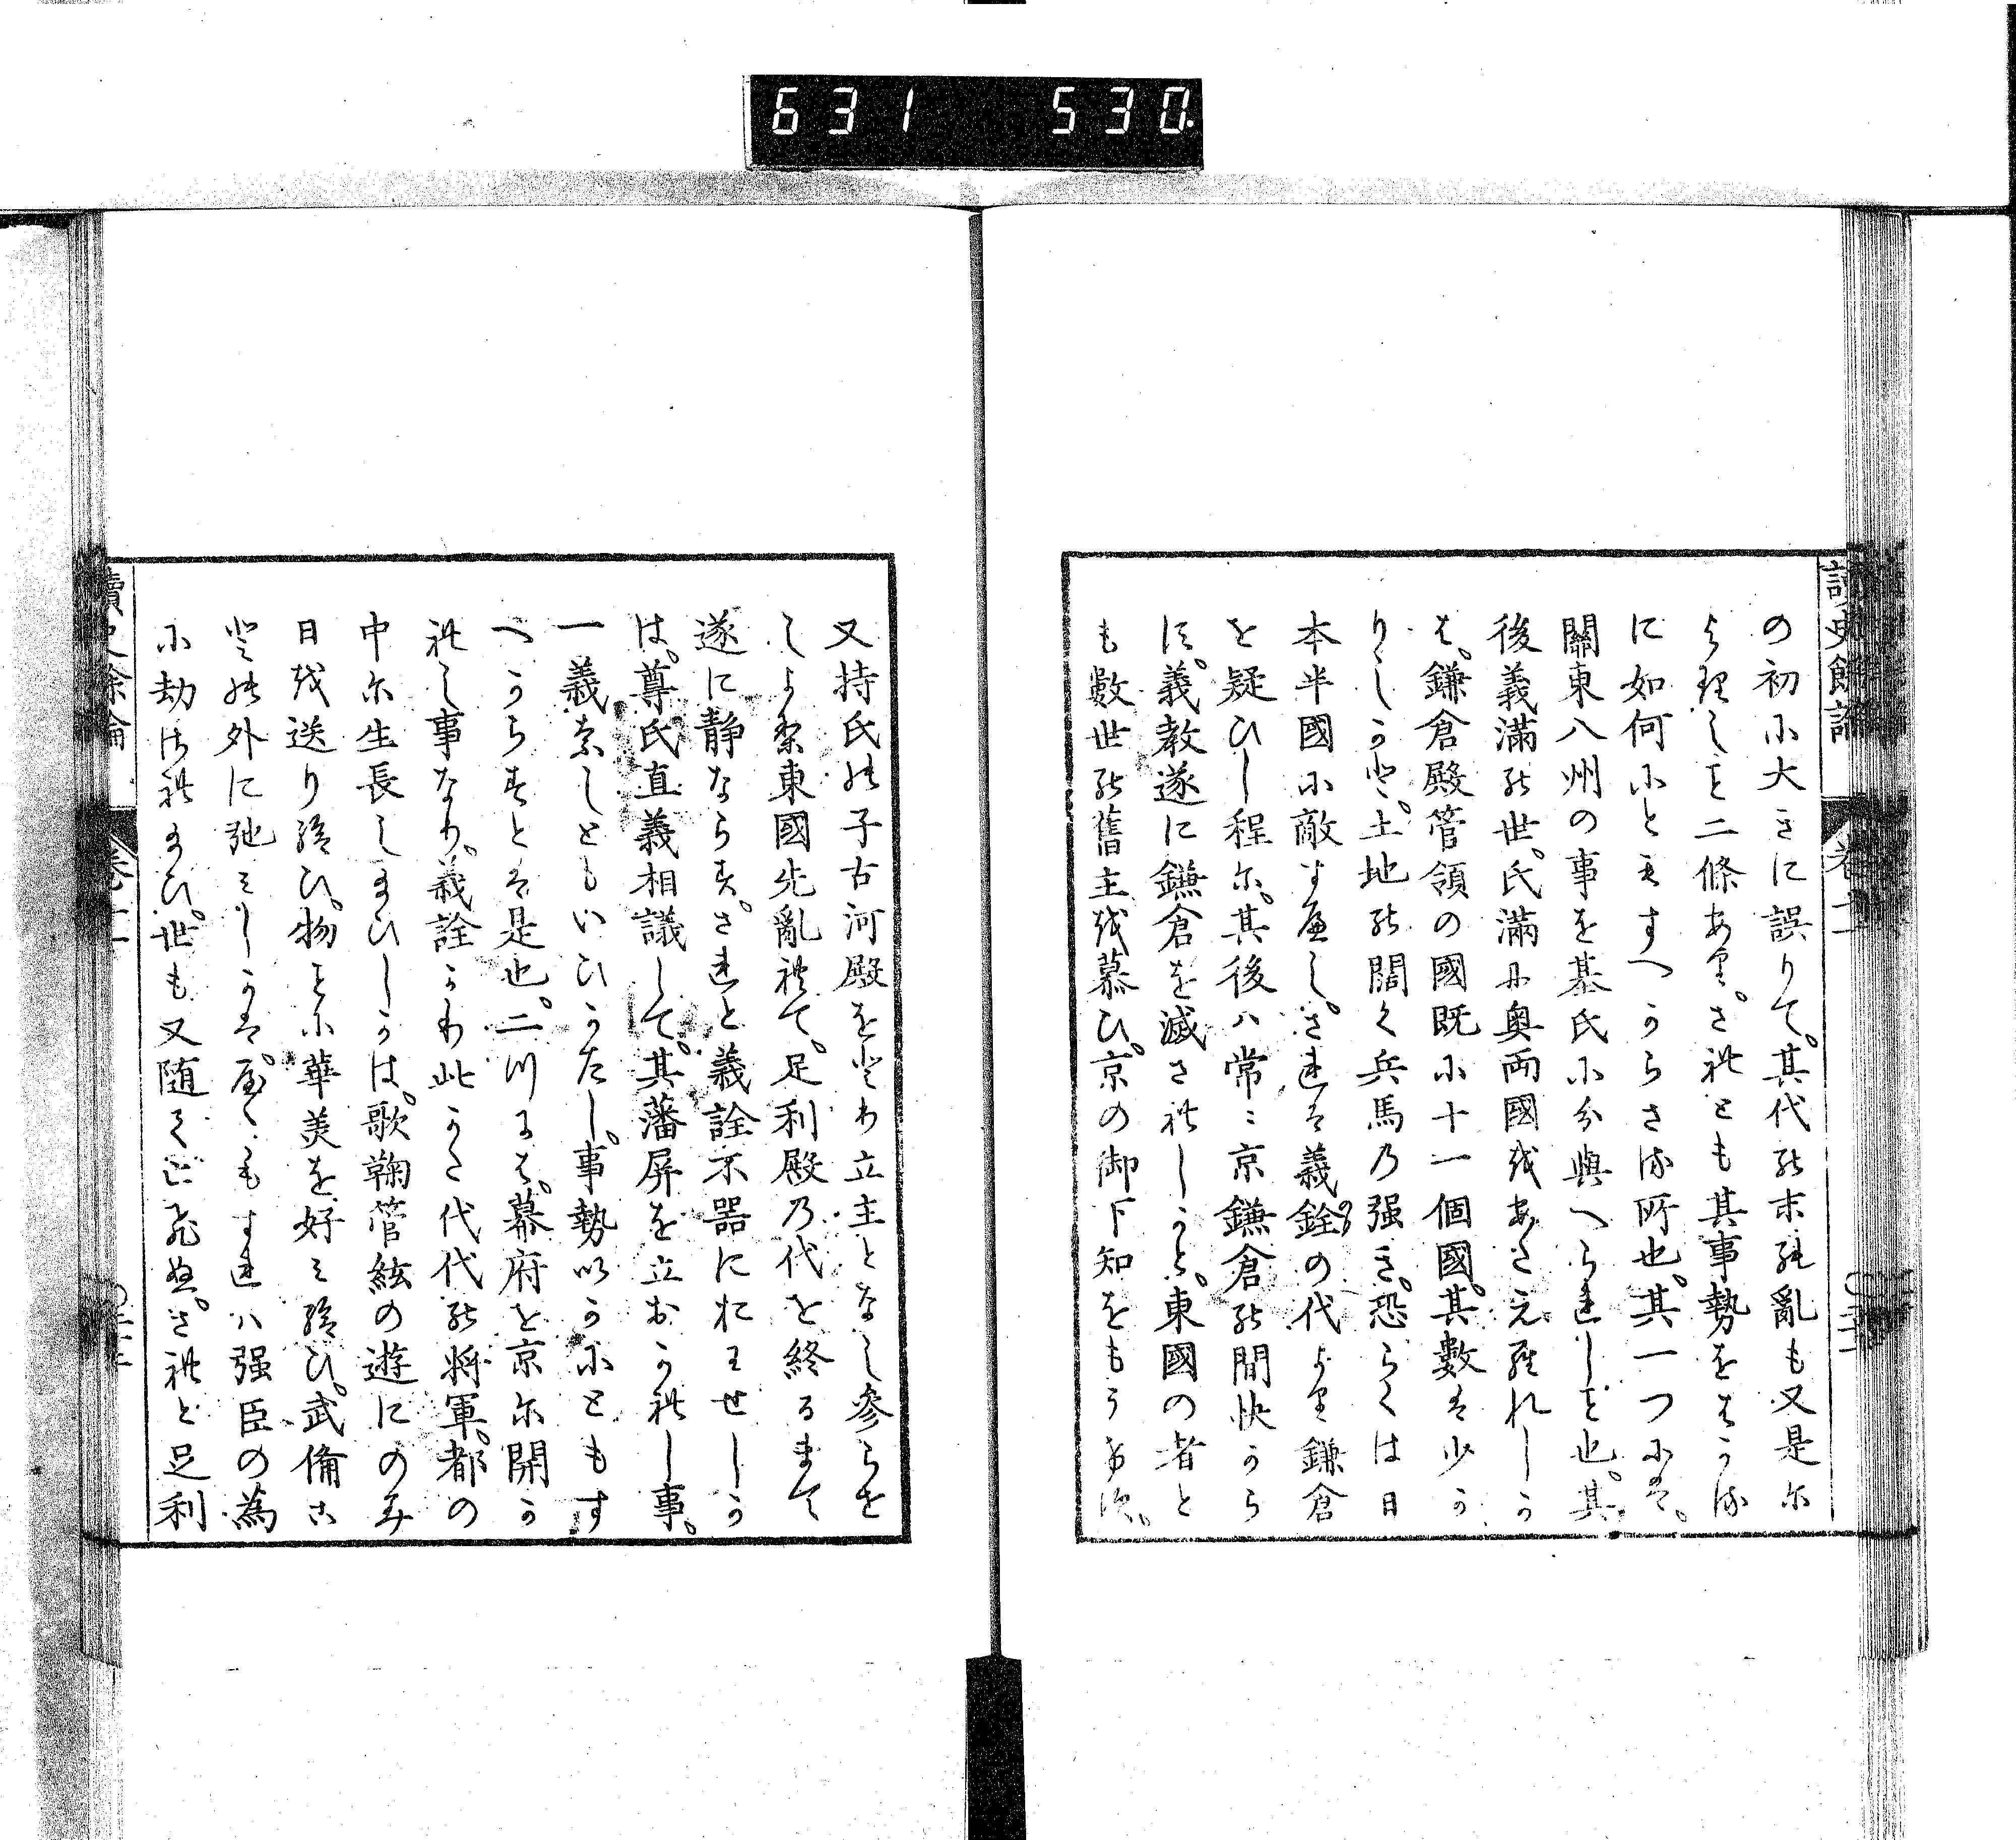 631 530
讀史餘論 卷十一
の初に大きに誤りて。其代の末の亂も又是に
より起しと二條あり。されとも其事勢をはかる
に如何にともすへからさる所也。其一つには。
關東八州の事を基氏に分與へられしと也。其
後義滿の世。氏滿に奧両國をあたえられしか
は。鎌倉殿管領の國既に十一個國。其數は少か
りしかと。土地の闊く兵馬乃强き。恐らくは日
本半國に敵すへし。されは義銓の代より鎌倉
を疑ひし程に。其後ハ常ニ京鎌倉の間快から
す。義教遂に鎌倉を滅されしかと。東國の者と
も數世の舊主を慕ひ。京の御下知をもうけす。
又持氏の子古河殿をとり立主となし參らせ
しより東國先亂れて。足利殿乃代を終るまて
遂に静ならす。されと義詮不器におはせしか
は。尊氏直義相議して。其藩屏を立おかれし事。
一義なしともいひかたし。事勢いかにともす
へからすとは是也。二川には。幕府を京に開か
れし事なり。義詮より此かた代代の將軍。都の
中に生長しまひしかは。歌鞠管絃の遊にのみ
日を送り給ひ。物ことに華美を好み給ひ。武備こ
との外に弛みしかは。屋〻もすれハ强臣の為
に劫されまひ。世も又随て亡ひぬ。されと足利
讀史餘論 卷十一